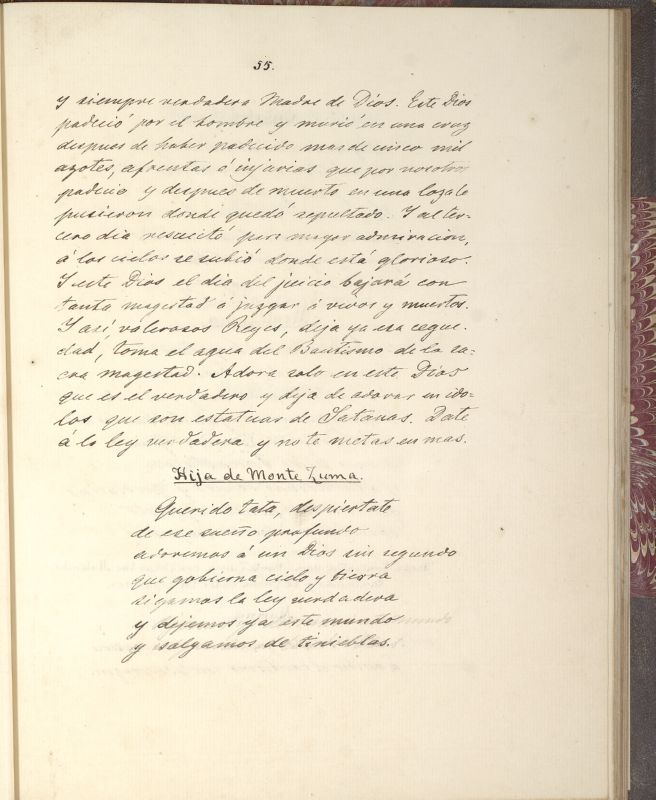 55.
y siempre verdadera Madre de Dios. Este Dios
padeció por el hombre y murió en una cruz
despues de haber padecido mas de cinco mil
azotes, afrentas é injurias que por nosotros
padecio y despues de muerto en una loza le
pusieron donde quedó sepultado. Y al ter-
cero dia resucitó para mayor admiracion,
á los cielos se subió donde está glorioso.
Y este Dios el dia del juicio bajará con
tanta magestad á juzgar á vivos y muertos.
Y asi valerosos Reyes, deja ya esa cegue-
dad, toma el agua del Bautismo de la sa-
cra magestad. Adora solo en este Dios
que es el verdadero y deja de adorar en ido-
los que son estatuas de Satanas. Date
á la ley verdadera y no te metas en mas.
Hija de Monte Zuma.
Querido tata, despiertate
de ese sueño profundo
adoremos á un Dios sin segundo
que gobierna cielo y tierra
sigamos la ley verdadera
y dejemos ya este mundo
y salgamos de tinieblas.